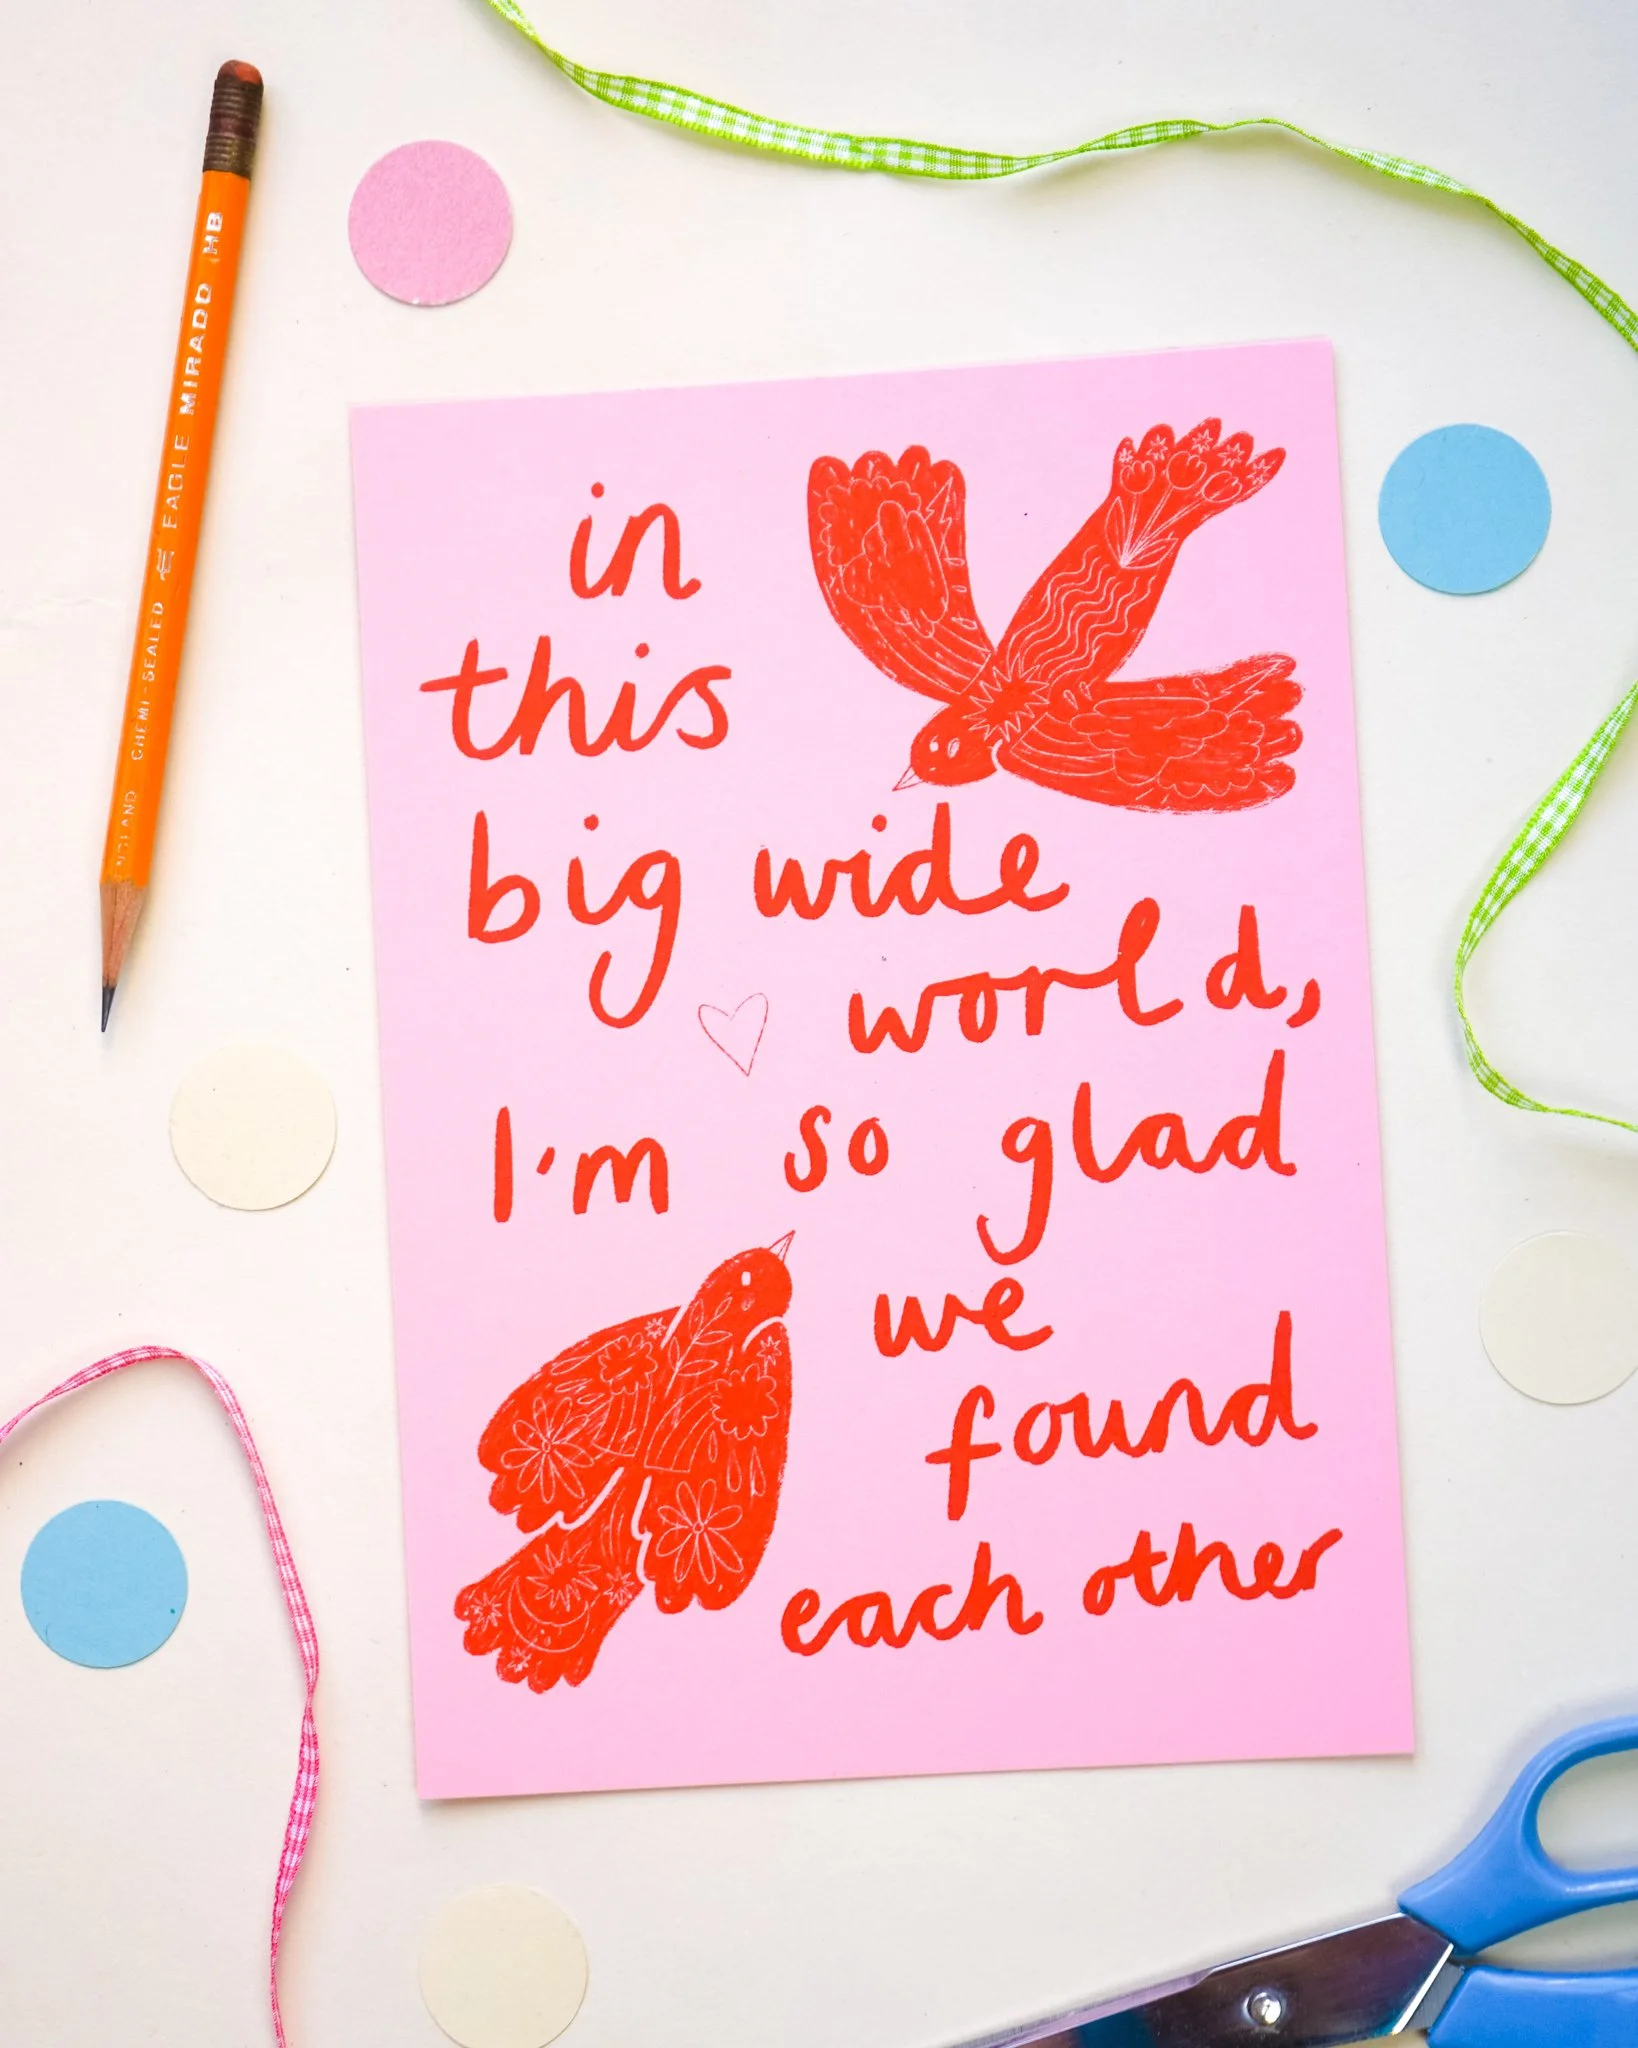 in
this
big wide
world,
I'm so glad
we
found
each other
EAGLE MIRADO HB
CHEMI-SEALED